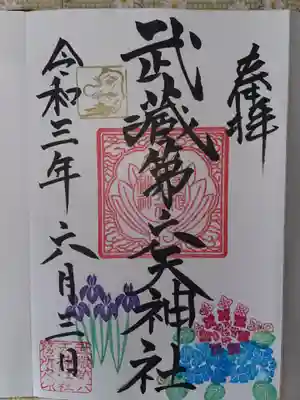 奉拝
武蔵第六天神社
令和三年六月三日